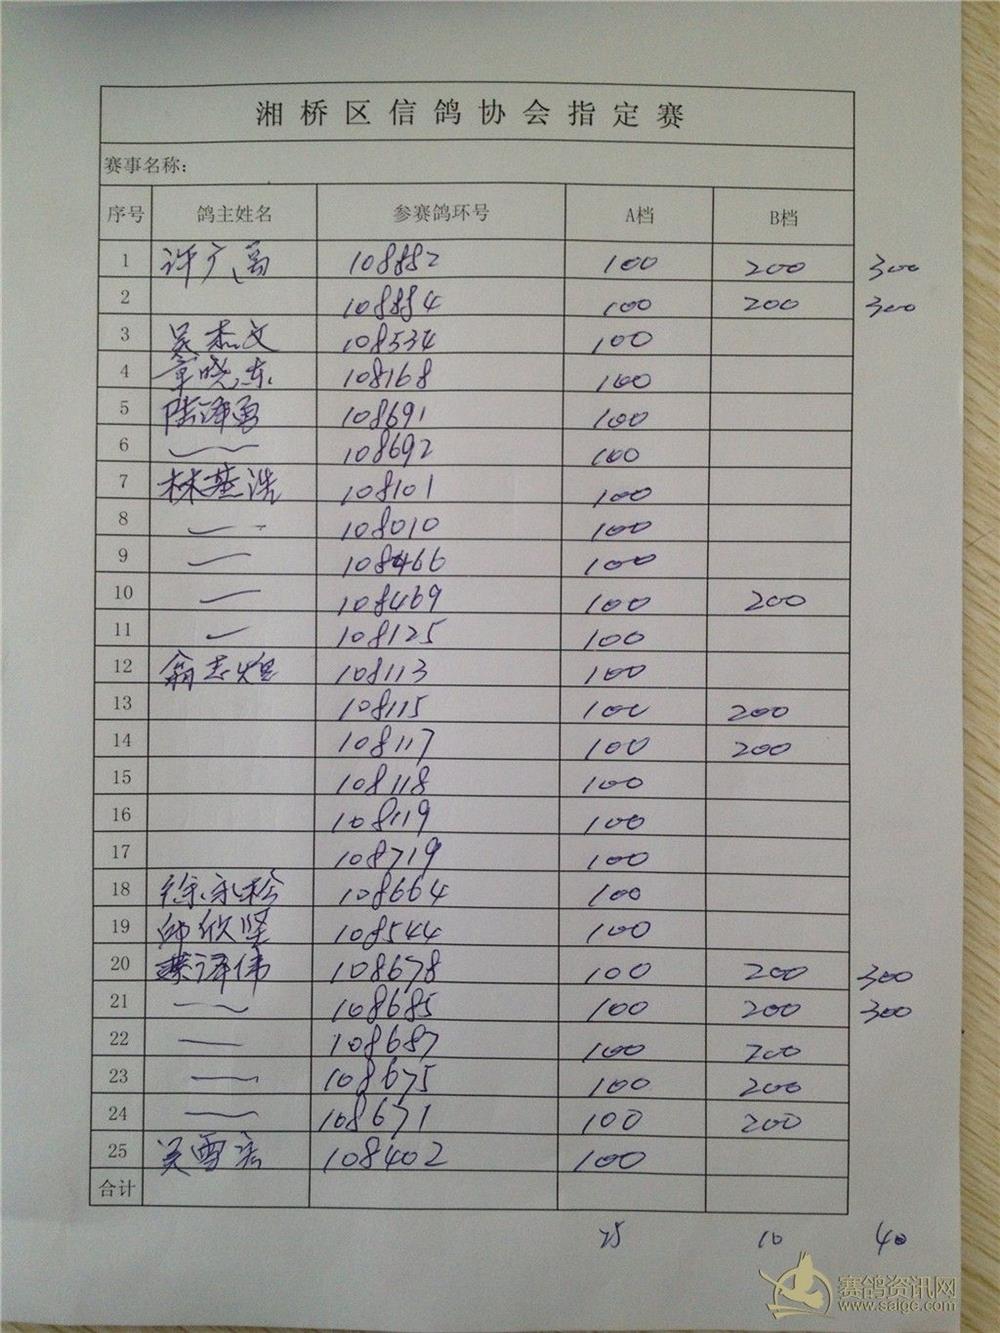 湘桥区信鸽协会指定赛
赛事名称:
序号 鸽主姓名 参赛鸽环号 A档 B档
1 许广高 108882 100 200 300
2 108884 100 200 300
3 吴杰文 108534 100
4 章晓东 108168 100
5 陆泽勇 108691 100
6 108692 100
7 林基浩 108101 100
8 108010 100
9 108466 100
10 108469 100 200
11 108125 100
12 翁志煌 108113 100
13 108115 100 200
14 108117 100 200
15 108118 100
16 108119 100
17 108719 100
18 徐永松 108664 100
19 108544 100
20 蔡泽伟 108678 100 200 300
21 108685 100 200 300
22 108687 100 200
23 108675 100 200
24 108671 100 200
25 吴雪宏 108402 100
合计
25 10 40
赛鸽资讯网
www.saige.com